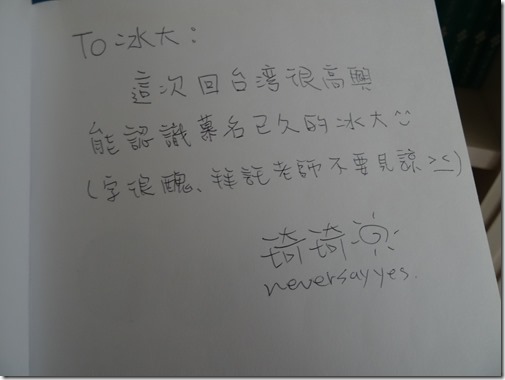 To 冰大:
這次回台湾很高興
能認識慕名已久的冰大
(字很醜、拜託老師不要見諒>_<)
琦琦
neversayyes.